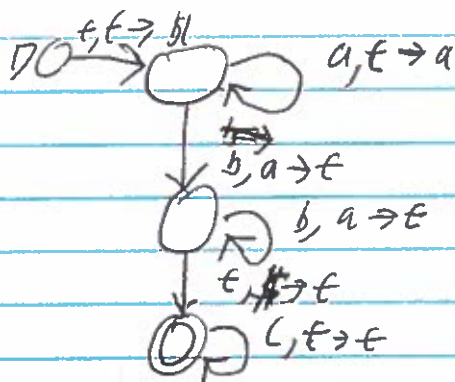 ε, ε →
a, ε → a
b, a → ε
b, a → ε
ε, $ → ε
c, ε → ε